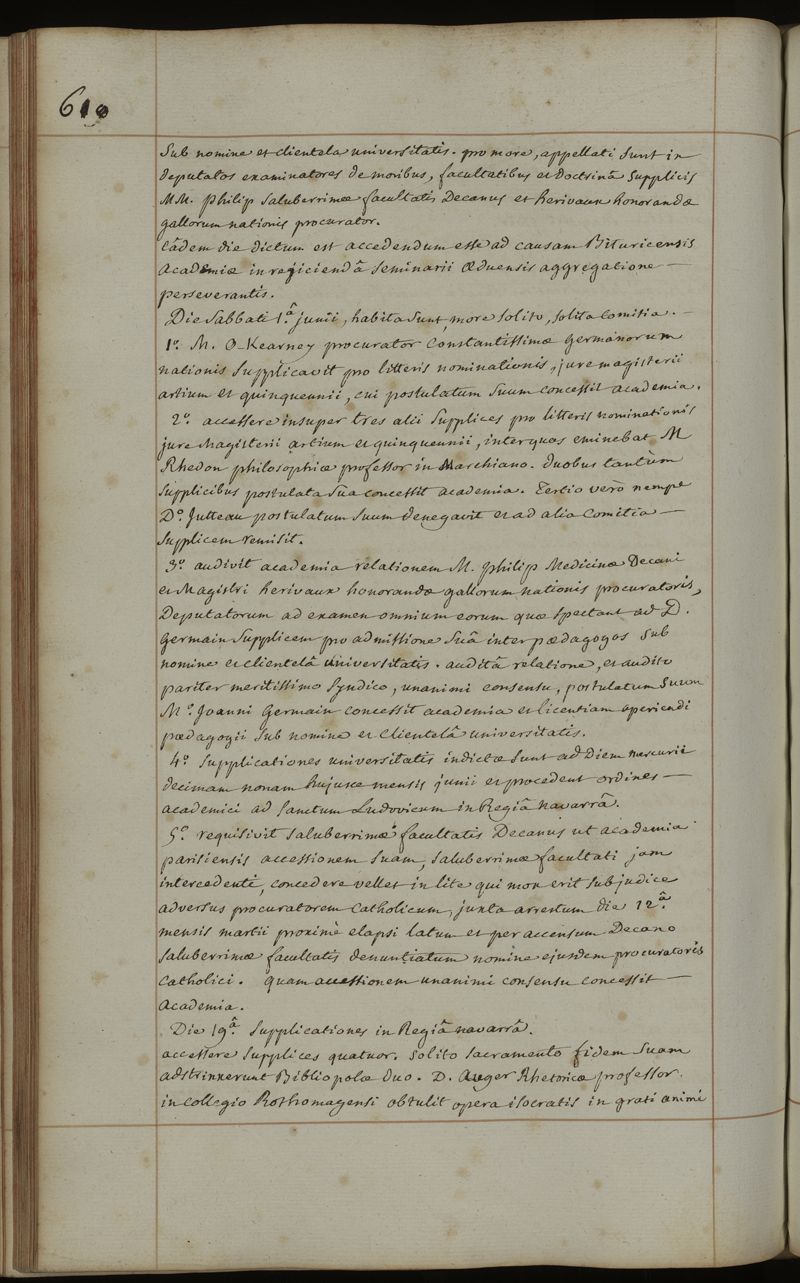 610
Sub nomine et clientela universitatis. pro more, appellati sunt in
deputatos examinatores de moribus, facultatibus et doctrinâ supplicis
MM. philip saluberrimæ facultatis Decanus et herivaux honorandæ
gallorum nationis procurator.
Eâdem die dictum est accedendum esse ad causam Bituricensis
Academiæ in rejiciendâ seminarii Æduensis aggregatione —
perseverantis.
Die Sabbati 1.â junii, habita sunt, more solito, solita Comitia. -
1.º M. O-Kearney procurator Constantissimæ germanorum
nationis supplicavit pro litteris nominationis, jure magisterii
artium et quinquennii, cui postulatum suum concessit academia.
2.º accessere insuper tres alii supplices pro litteris nominationis
jure Magisterii artium et quinquennii, inter quos eminebat M
Rhedon philosophiæ professor in Marchiano. duobus tantùm
supplicibus postulata sua concessit academia. Tertio verò nempe
D.º Jutteau postulatum suum denegavit et ad alia Comitia —
supplicem remisit.
3.º audivit academia relationem M. philip Medicinæ Decani
et Magistri herivaux honorandæ gallorum nationis procuratoris,
Deputatorum ad examen omnium eorum quæ spectant ad D.
Germain supplicem pro admissione suâ inter pædagogos sub
nomine et clientelâ universitatis. auditâ relatione, et audito
pariter meritissimo syndico, unanimi consensu, postulatum suum
M.º Joanni Germain concessit academia et licentiam aperiendi
pædagogii sub nomine et clientelâ universitatis.
4.º Supplicationes universitatis indictæ sunt ad Diem mercurii
decimam nonam hujusce mensis junii et procedent ordines —
academici ad Sanctum Ludovicum in Regiâ navarrâ.
5.º requisivit saluberrimæ facultatis Decanus ut academia
parisiensis accessionem suam, saluberrimæ facultati jam
intercedenti, concedere vellet in lite qui mox erit sub judice
adversus procuratorem Catholicum, juxta arrestum die 12.â
mensis martii proximè elapsi latum et per accensum Decano
saluberrimæ facultatis denuntiatum nomine ejusdem procuratoris
Catholici. quam accessionem unanimi consensu concessit —
academia.
Die 19.â Supplicationes in Regiâ navarrâ.
accessere supplices quatuor. solito sacramento fidem suam
adstrinxerunt Bibliopolæ duo. D. Auger Rhetoricæ professor
in collegio Rothomagensi obtulit opera isocratis in grati animi